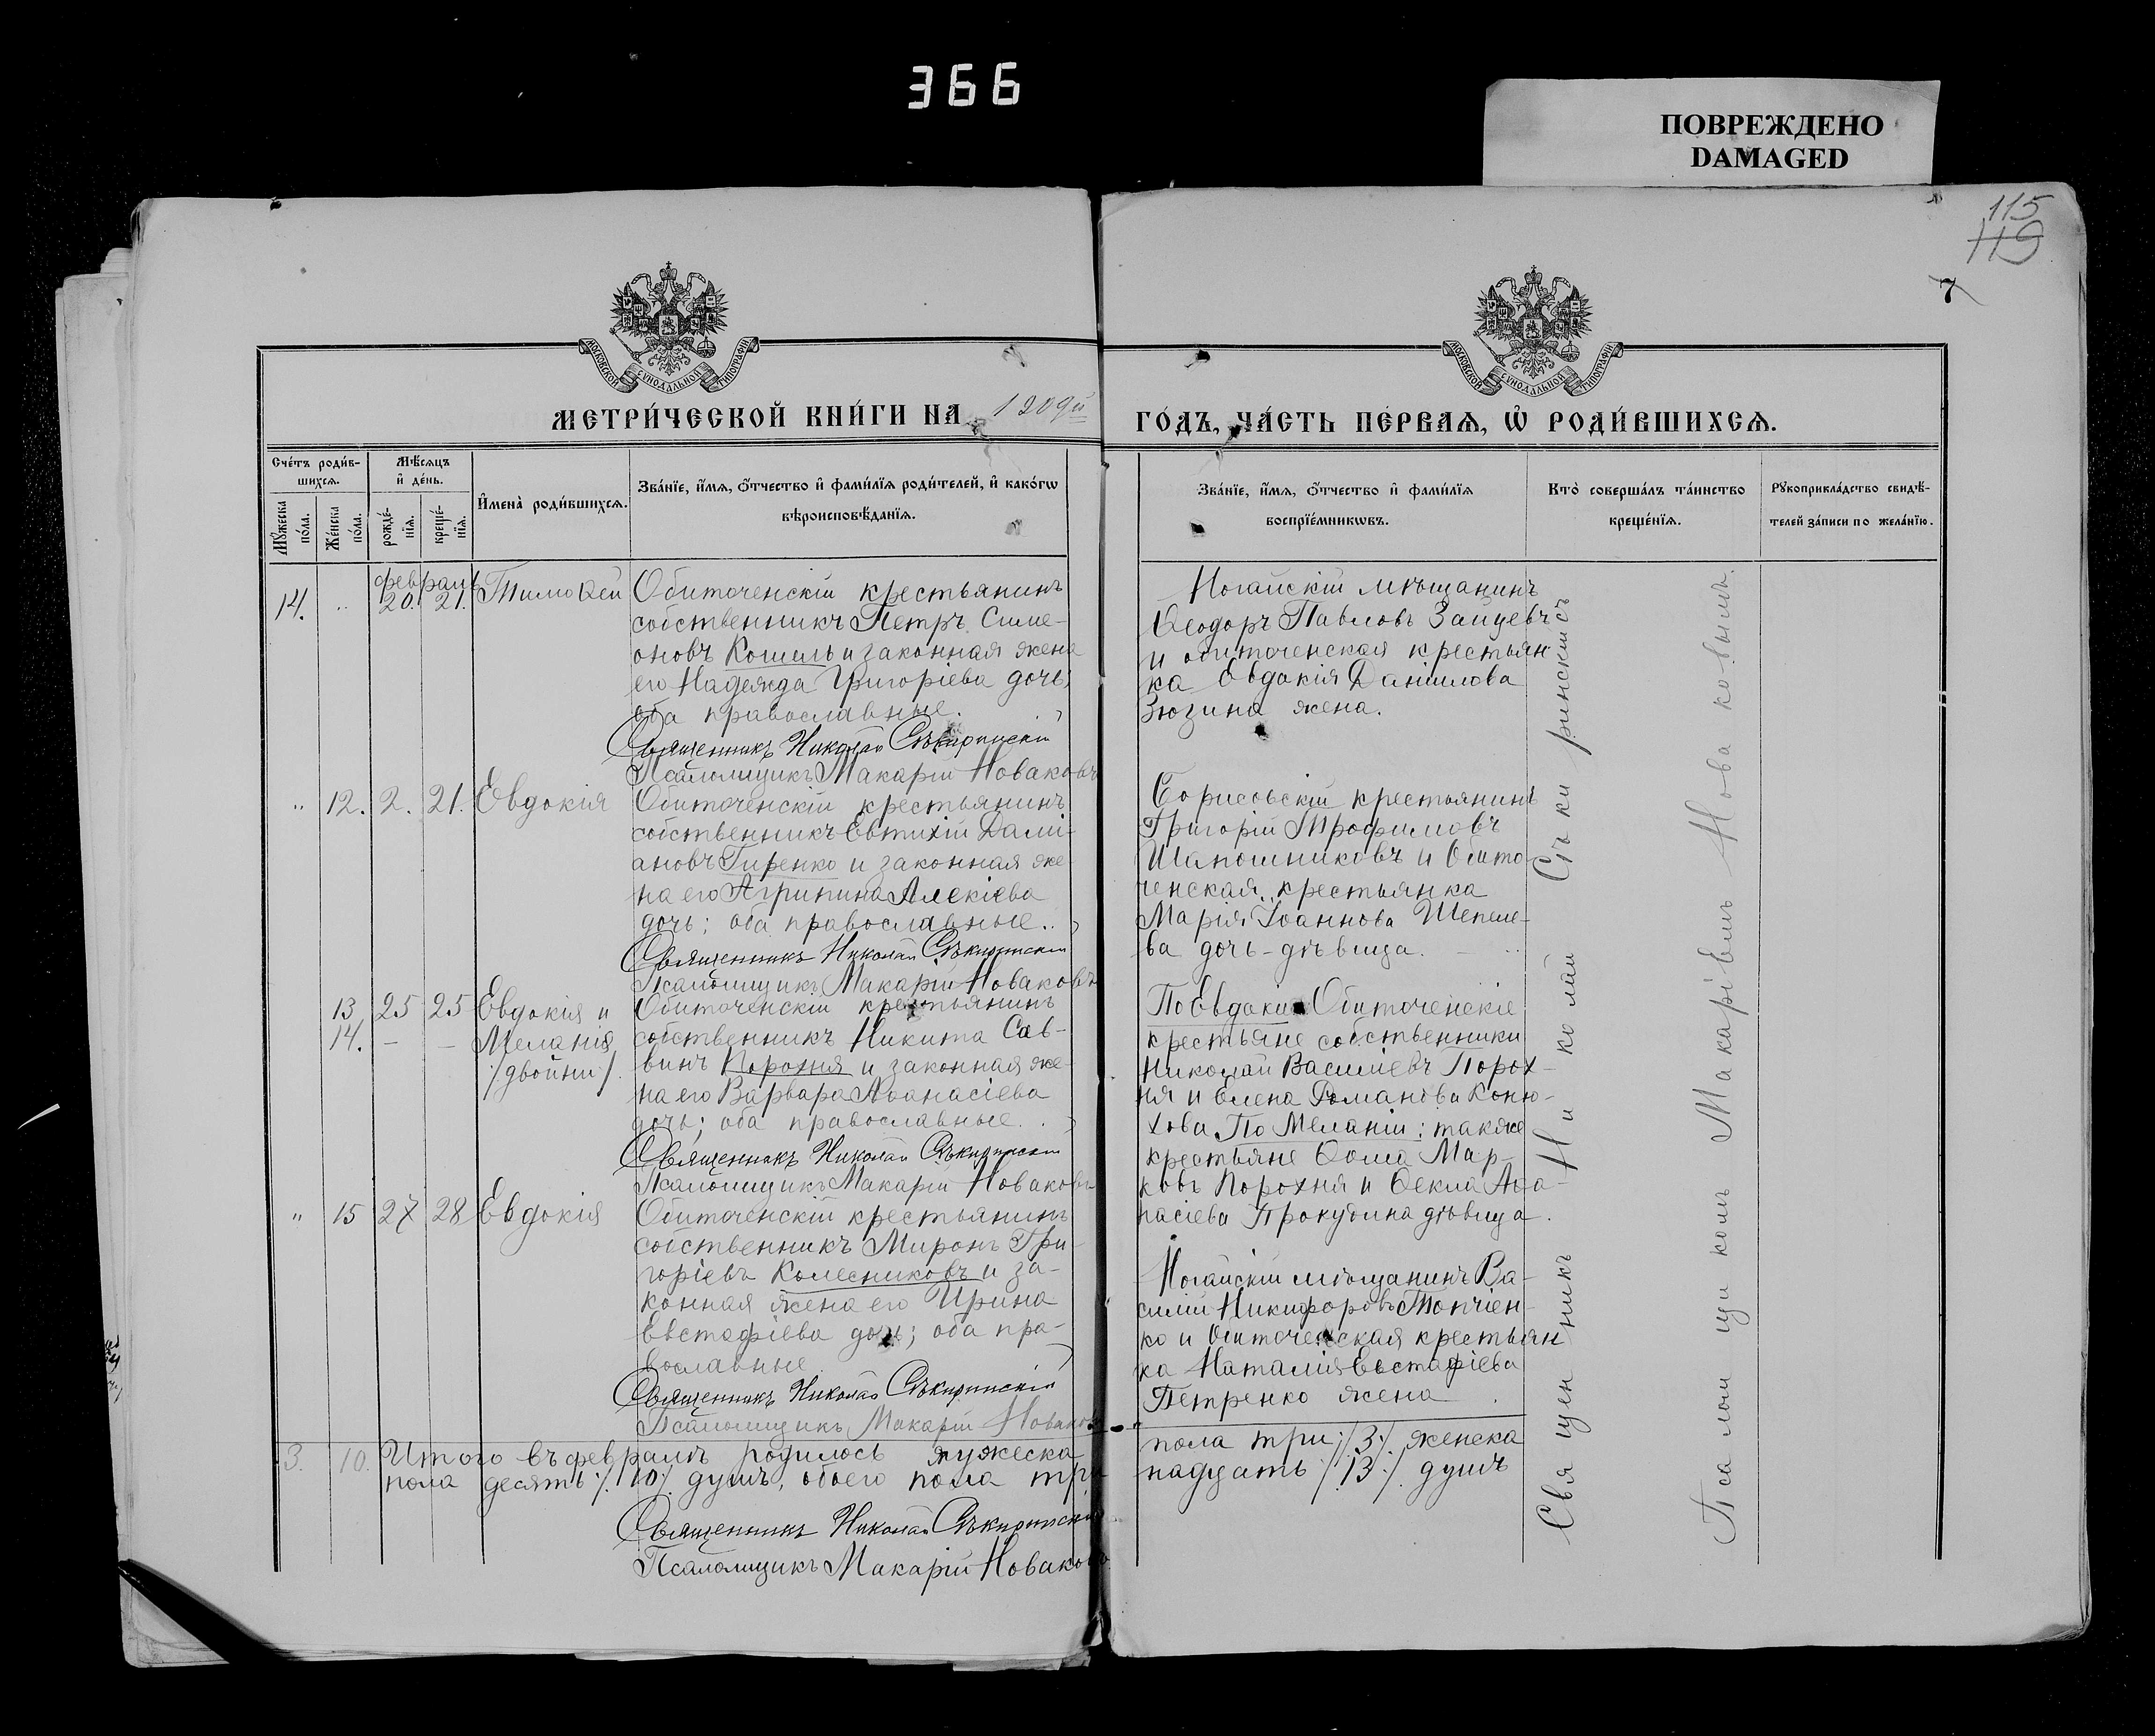 366
ПОВРЕЖДЕНО
DAMAGED
115
119
7
МОСКОВСКОЙ СУНОДАЛЬНОЙ ТИПОГРАФІИ
МОСКОВСКОЙ СУНОДАЛЬНОЙ ТИПОГРАФІИ
МЕТРИ́ЧЕСКОЙ КНИ́ГИ НА
ГО́ДЪ, ЧА́СТЬ ПЕ́РВАѦ, Ѡ҆ РОДИ́ВШИХСѦ.
Сче́тъ роди́в-
шихсѧ.
Мꙋ́жеска по́ла.
Же́нска по́ла.
Мѣ́сѧцъ
и҆ де́нь.
рожде́-
нїѧ.
креще́-
нїѧ.
И҆мена̀ роди́вшихсѧ.
Зва́нїе, и҆́мѧ, ѻ҆́тчество и҆ фами́лїѧ роди́телей, и҆ како́гѡ
вѣроисповѣ́данїѧ.
Зва́нїе, и҆́мѧ, ѻ҆́тчество и҆ фами́лїѧ
воспрїе́мникѡвъ.
Кто̀ соверша́лъ та́инство
креще́нїѧ.
Рꙋкоприкла́дство свидѣ́-
телей за́писи по жела́нїю.
14. " февраль 20. 21. Тимоѳей
Обиточенскій крестьянинъ
собственникъ Петръ Симе-
оновъ Кошель и законная жена
его Надежда Григоріева дочь,
оба православные.
Священникъ Николай Сѣкиринскій
Псаломщикъ Макарій Новаковъ
Ногайскій мѣщанинъ
Ѳеодоръ Павловъ Зайцевъ
и обиточенская крестьян
ка Евдокія Даніилова
Зюзина жена.
" 12. 2. 21. Евдокія
Обиточенскій крестьянинъ
собственникъ Евтихій Дамі-
ановъ Гиренко и законная же-
на его Агрипина Алексіева
дочь; оба православные..
Священникъ Николай Сѣкиринскій
Псаломщикъ Макарій Новаковъ
Борисовскій крестьянинъ
Григорій Трофимовъ
Шапошниковъ и Обито-
ченская крестьянка
Марія Іоаннова Шепеле-
ва дочь-дѣвица.
13 25 25 Евдокія и
14. – – Меланія
/двойни/.
Обиточенскій крестьянинъ
собственникъ Никита Сав-
винъ Порохня и законная же-
на его Варвара Аѳанасіева
дочь; оба православные.
Священникъ Николай Сѣкиринскій
Псаломщикъ Макарій Новаковъ
По Евдокіи Обиточенскіе
крестьяне собственники
Николай Василіевъ Порох-
ня и Елена Романова Коню-
хова. По Меланіи: также
крестьяне Ѳома Мар-
ковъ Порохня и Ѳекла Аѳа-
насіева Прокудина дѣвица.
" 15 27 28 Евдокія
Обиточенскій крестьянинъ
собственникъ Миронъ Гри-
горіевъ Колесниковъ и за-
конная жена его Ирина
Евстафіева дочь; оба пра-
вославные
Священникъ Николай Сѣкиринскій
Псаломщикъ Макарій Новаковъ
Ногайскій мѣщанинъ Ва-
силій Никифоровъ Топчіен-
ко и Обиточенская крестьян
ка Наталія Евстафіева
Петренко жена
3. 10. Итого въ февралѣ родилось мужеска
пола три /.3./. женска
пола десять /.10/. душъ, обоего пола три
надцать /.13./. душъ
Священникъ Николай Сѣкиринскій
Псаломщикъ Макарій Новаковъ
Священникъ Николай Сѣкиринскій
Псаломщикомъ Макаріемъ Новаковымъ.